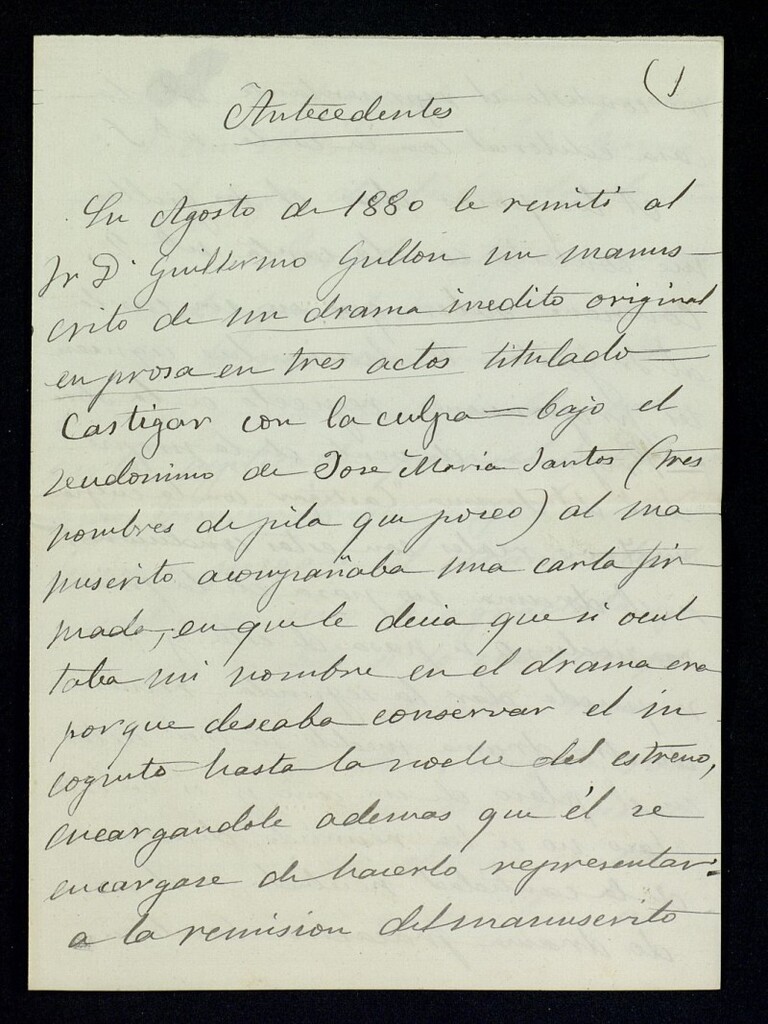 (1
Antecedentes
En Agosto de 1880 le remiti al
Sr D. Guillermo Gullon un manus-
crito de un drama inedito original
en prosa en tres actos titulado =
Castigar con la culpa = bajo el
seudonimo de Jose Maria Santos (tres
nombres de pila que poseo) al ma
nuscrito acompañaba una carta fir-
mada, en que le decia que si ocul-
taba mi nombre en el drama era
porque deseaba conservar el in-
cognito hasta la noche del estreno,
encargandole ademas que él se
encargase de hacerlo representar.
a la remision del manuscrito